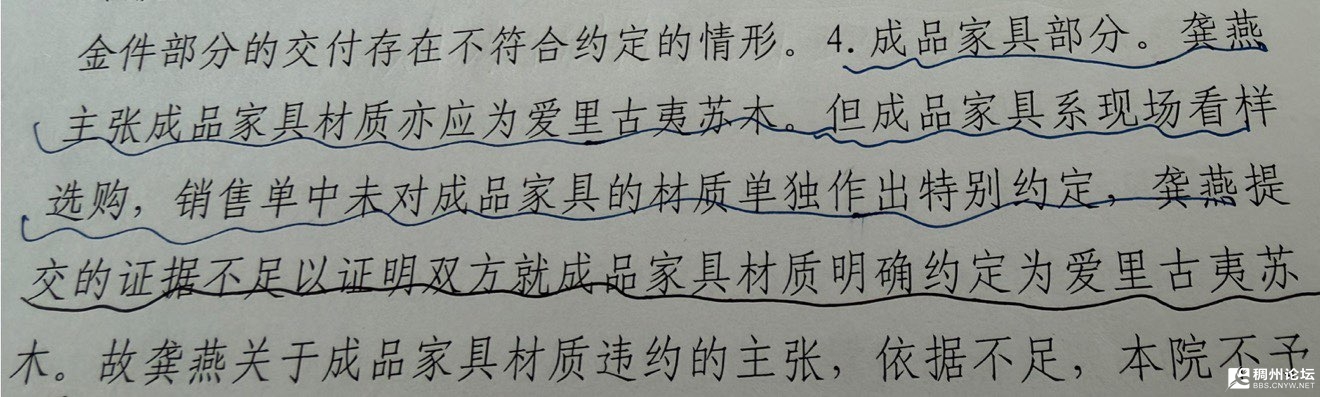 金件部分的交付存在不符合约定的情形。4.成品家具部分。龚燕
主张成品家具材质亦应为爱里古夷苏木。但成品家具系现场看样
选购，销售单中未对成品家具的材质单独作出特别约定，龚燕提
交的证据不足以证明双方就成品家具材质明确约定为爱里古夷苏
木。故龚燕关于成品家具材质违约的主张，依据不足，本院不予
稠州论坛
BBS.CNYW.NET